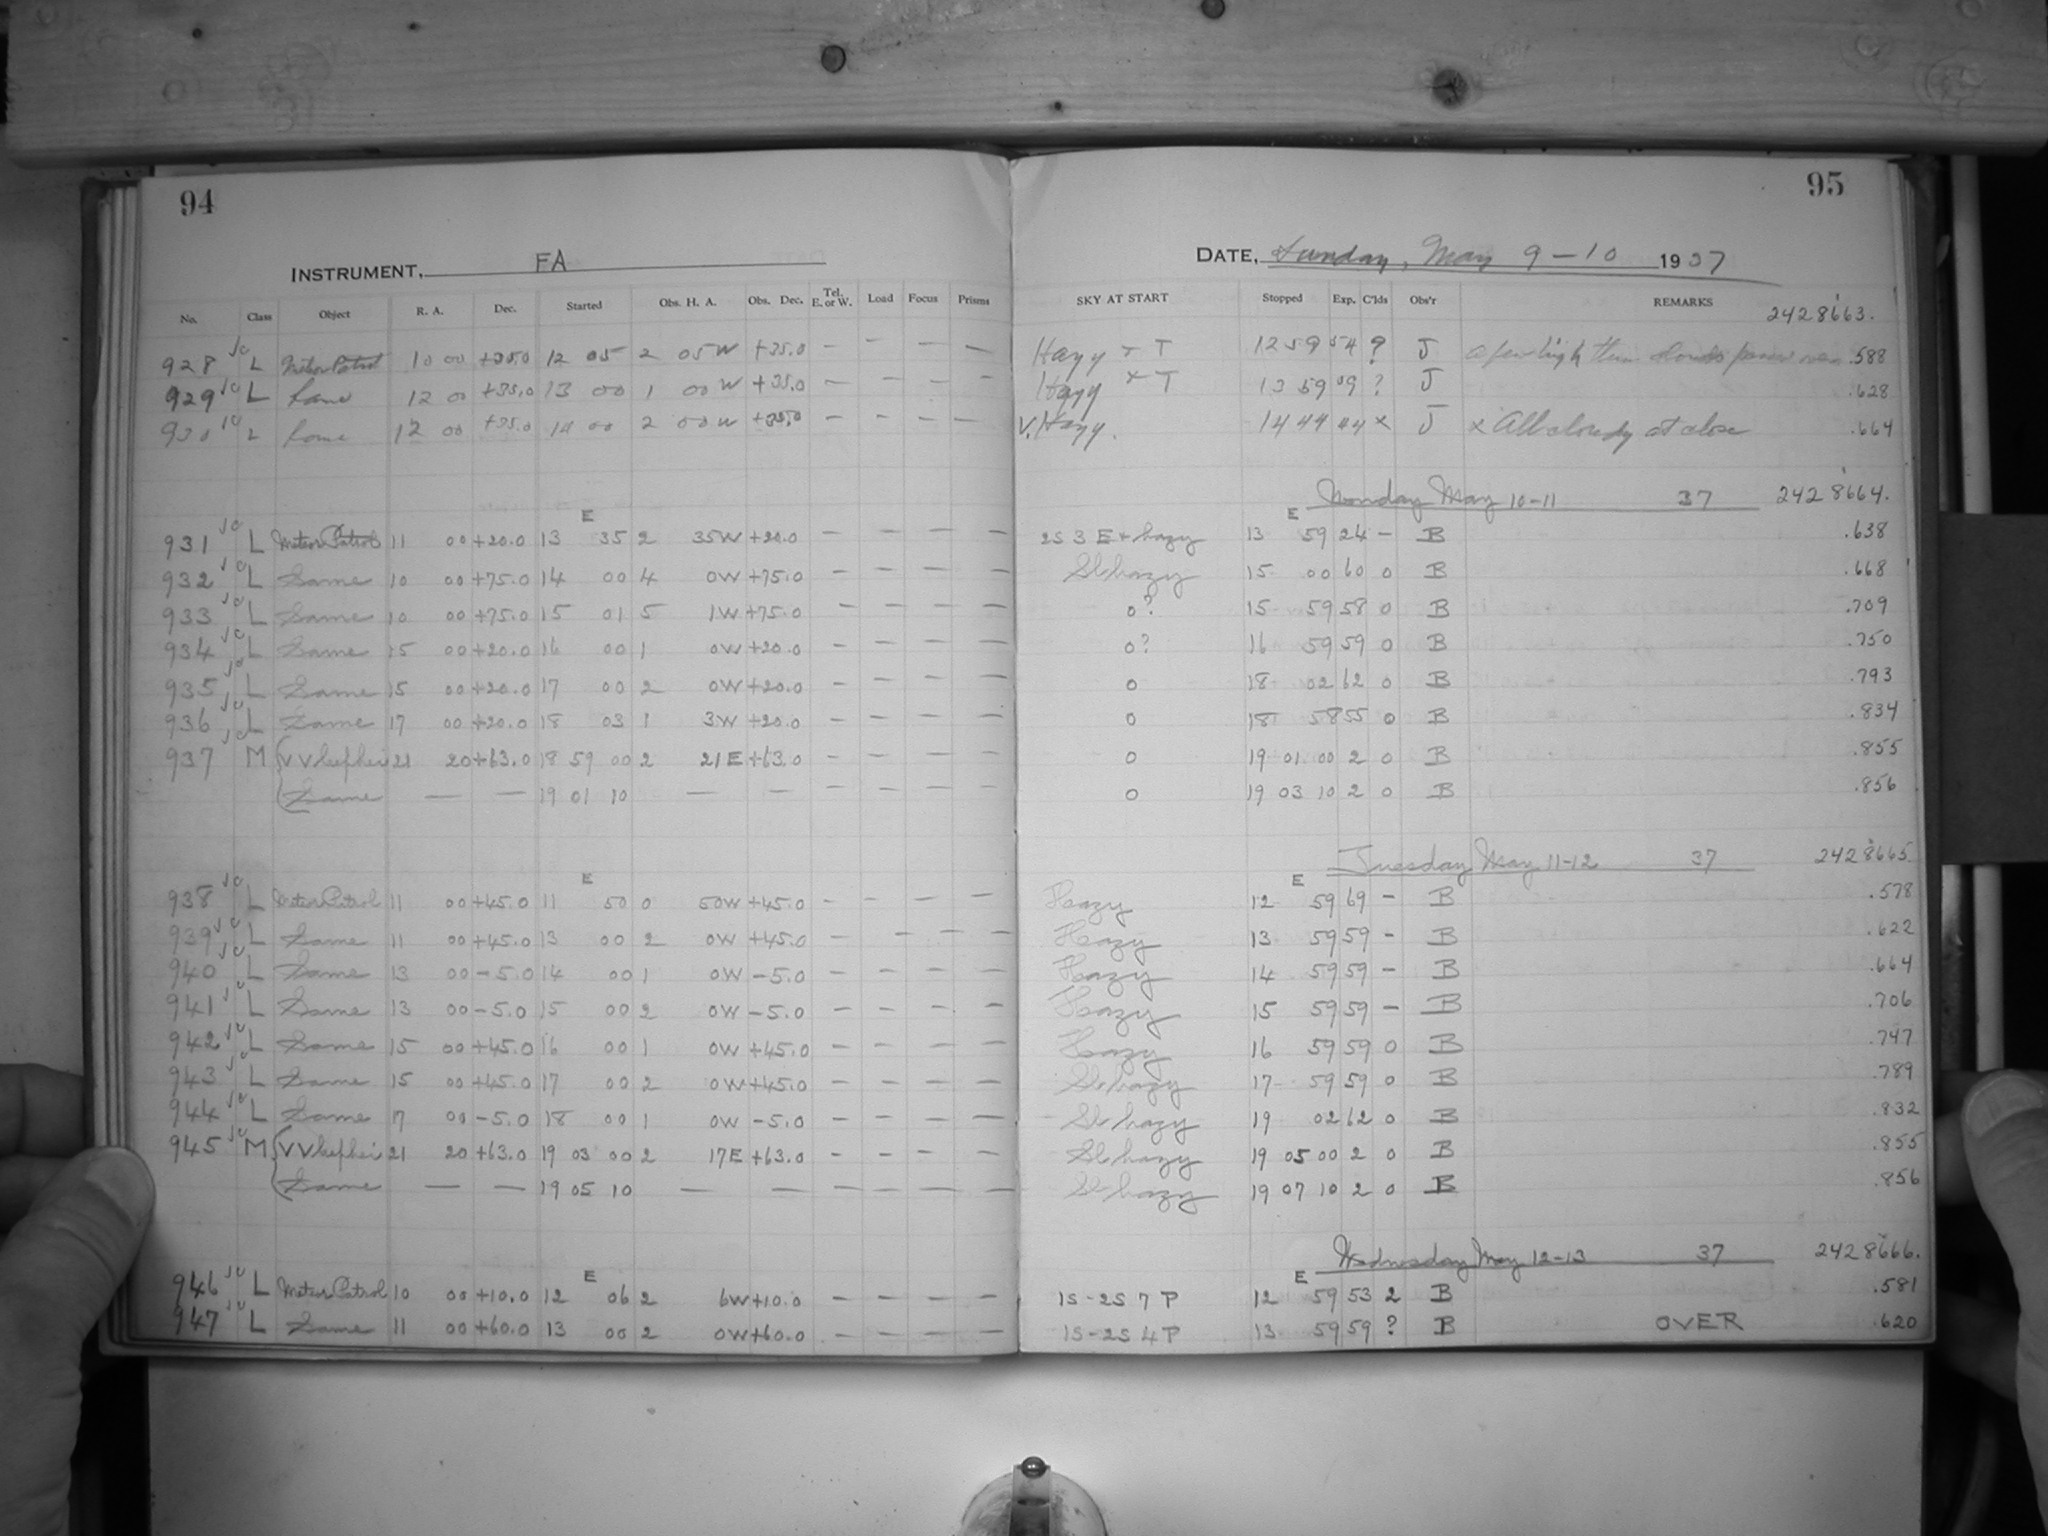 94
95
INSTRUMENT, FA
DATE, Sunday, May 9-10 1937
No. Class Object R. A. Dec. Started Obs. H. A. Obs. Dec. Tel. E. or W. Load Focus Prisms SKY AT START Stopped Exp. C'lds Obs'r REMARKS
2428663.
928 L Meteor Patrol 10 00 +35.0 12 05 2 05W +35.0 – – – – Hazy + T 12 59 54 ? J a few high thin clouds over .588
929 L Same 12 00 +35.0 13 00 1 00W +35.0 – – – – Hazy + T 13 59 59 ? J .628
930 L Same 12 00 +35.0 14 00 2 00W +35.0 – – – – V. Hazy. 14 44 44 x J x All cloudy at close .664
Monday May 10-11 37 2428664.
931 L Meteor Patrol 11 00 +20.0 13 E 35 2 35W +20.0 – – – – 2S 3 E + hazy 13 E 59 24 – B .638
932 L Same 10 00 +75.0 14 00 4 0W +75.0 – – – – Sl hazy 15 00 60 0 B .668
933 L Same 10 00 +75.0 15 01 5 1W +75.0 – – – – 0? 15 59 58 0 B .709
934 L Same 15 00 +20.0 16 00 1 0W +20.0 – – – – 0? 16 59 59 0 B .750
935 L Same 15 00 +20.0 17 00 2 0W +20.0 – – – – 0 18 02 62 0 B .793
936 L Same 17 00 +20.0 18 03 1 3W +20.0 – – – – 0 18 58 55 0 B .834
937 M { VV Cephei 21 20 +63.0 18 59 00 2 21E +63.0 – – – – 0 19 01 00 2 0 B .855
Same – – 19 01 10 – – – – – – 0 19 03 10 2 0 B .856
Tuesday May 11-12 37 2428665.
938 L Meteor Patrol 11 00 +45.0 11 E 50 0 50W +45.0 – – – – Hazy 12 E 59 69 – B .578
939 L Same 11 00 +45.0 13 00 2 0W +45.0 – – – – Hazy 13 59 59 – B .622
940 L Same 13 00 –5.0 14 00 1 0W –5.0 – – – – Hazy 14 59 59 – B .664
941 L Same 13 00 –5.0 15 00 2 0W –5.0 – – – – Hazy 15 59 59 – B .706
942 L Same 15 00 +45.0 16 00 1 0W +45.0 – – – – Hazy 16 59 59 0 B .747
943 L Same 15 00 +45.0 17 00 2 0W +45.0 – – – – Sl hazy 17 59 59 0 B .789
944 L Same 17 00 –5.0 18 00 1 0W –5.0 – – – – Sl hazy 19 02 62 0 B .832
945 M { VV Cephei 21 20 +63.0 19 03 00 2 17E +63.0 – – – – Sl hazy 19 05 00 2 0 B .855
Same – – 19 05 10 – – – – – – Sl hazy 19 07 10 2 0 B .856
Wednesday May 12-13 37 2428666.
946 L Meteor Patrol 10 00 +10.0 12 E 06 2 6W +10.0 – – – – 1S-2S 7 P 12 E 59 53 2 B .581
947 L Same 11 00 +60.0 13 00 2 0W +60.0 – – – – 1S-2S 4 P 13 59 59 ? B OVER .620